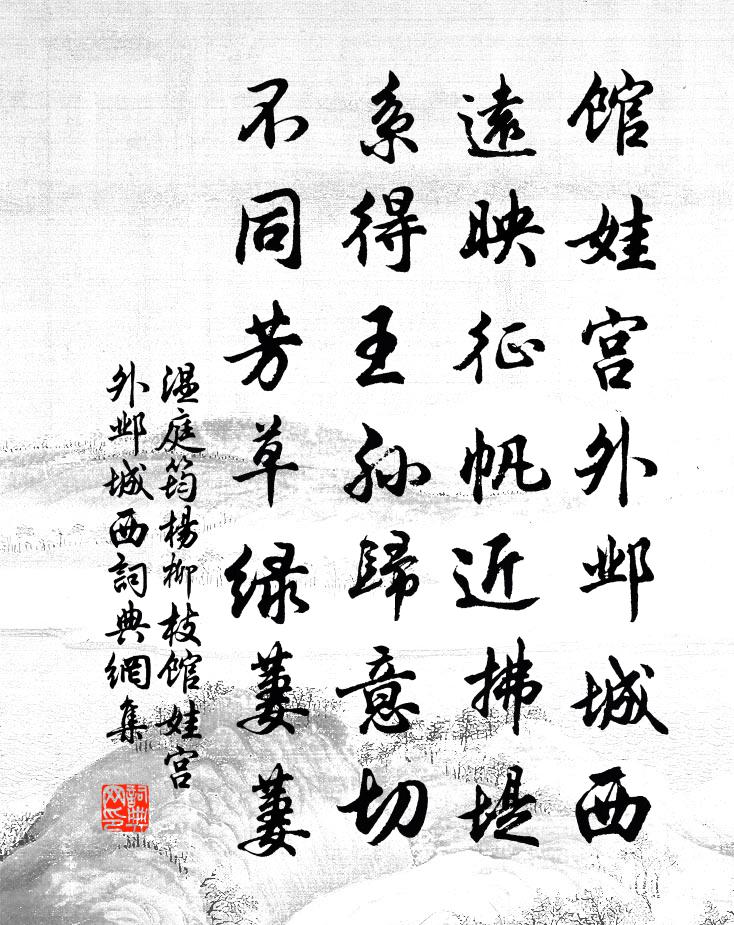 馆娃宫外邺城西
遠映征帆近拂堤
系得王孙歸意切
不同芳草绿萋萋
温庭筠楊柳枝馆娃宫
外邺城西詞典網集